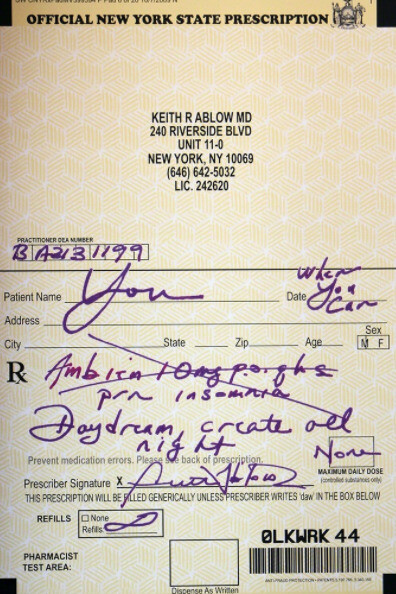 OFFICIAL NEW YORK STATE PRESCRIPTION
KEITH R ABLOW MD
240 RIVERSIDE BLVD
UNIT 11-0
NEW YORK, NY 10069
(646) 642-5032
LIC. 242620
PRACTITIONER DEA NUMBER
BA2131199
Patient Name You Date When You Can
Address
City State Zip Age Sex
M F
Rx Ambien 10mg p.o. qhs
prn insomnia
Daydream, create all
night
Prevent medication errors. Please see back of prescription.
None
MAXIMUM DAILY DOSE
(controlled substances only)
Prescriber Signature X
THIS PRESCRIPTION WILL BE FILLED GENERICALLY UNLESS PRESCRIBER WRITES 'daw' IN THE BOX BELOW
REFILLS None
Refills: ∞
0LKWRK 44
PHARMACIST
TEST AREA:
Dispense As Written